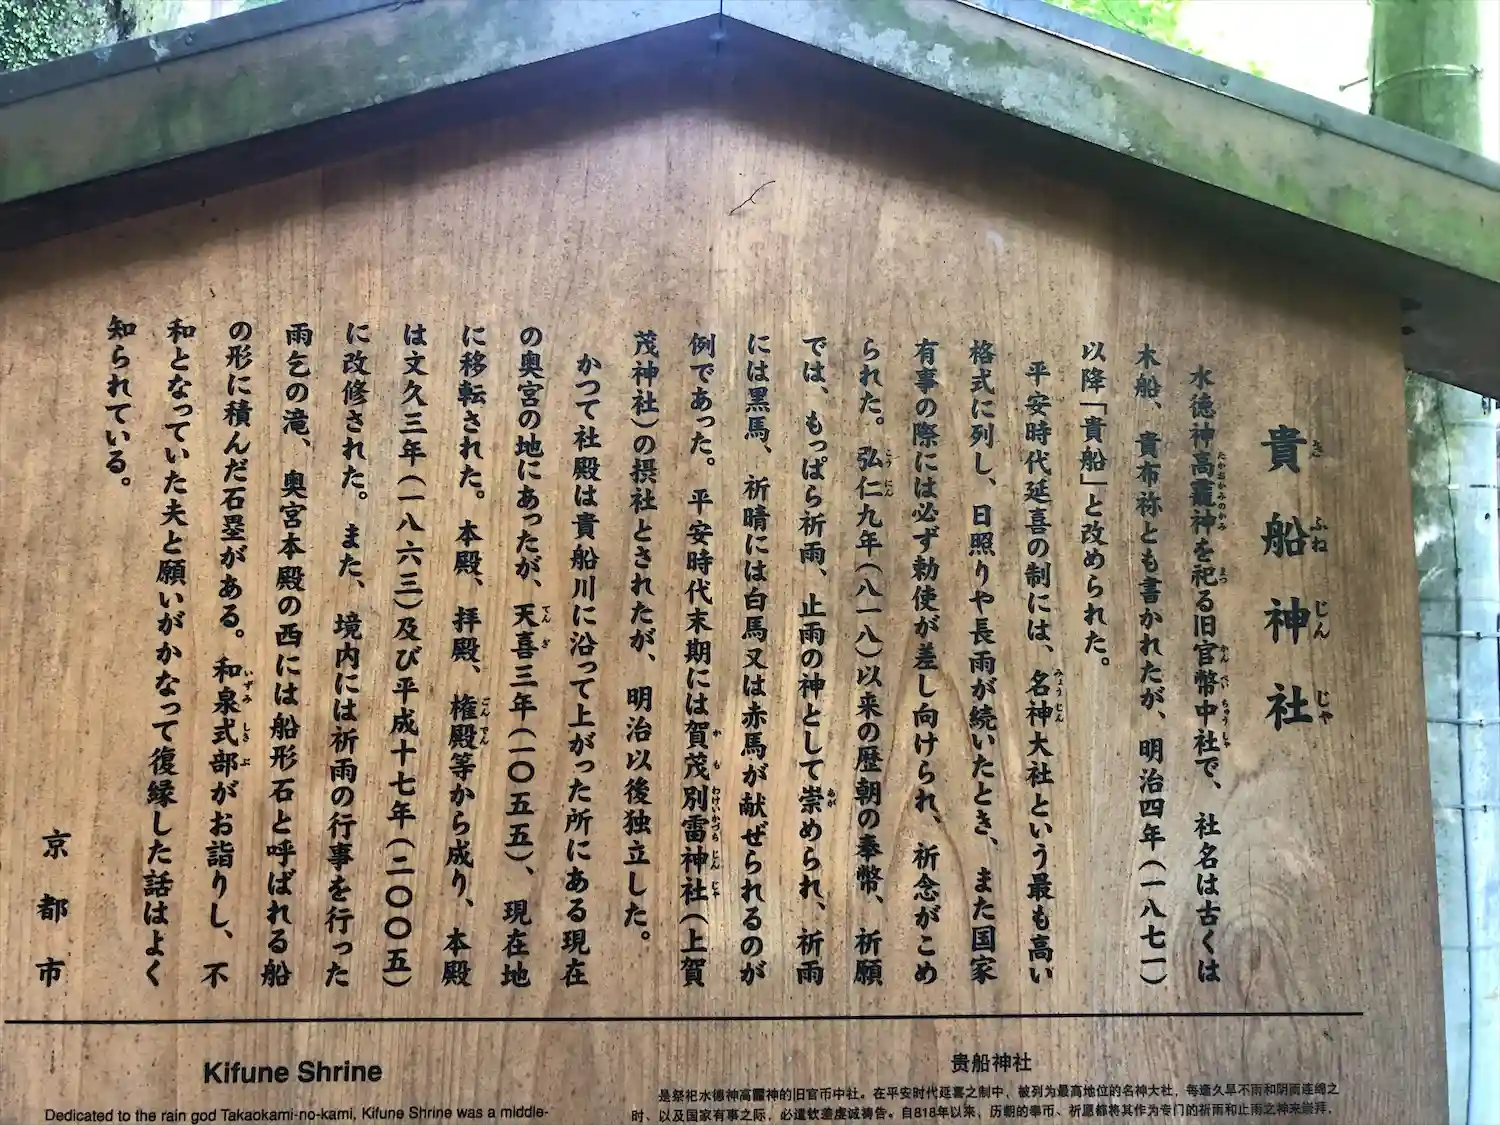 貴船神社
きふねじんじゃ
水德神高龗神を祀る旧官幣中社で、社名は古くは
木船、貴布祢とも書かれたが、明治四年(一八七一)
以降「貴船」と改められた。
平安時代延喜の制には、名神大社という最も高い
格式に列し、日照りや長雨が続いたとき、また国家
有事の際には必ず勅使が差し向けられ、祈念がこめ
られた。弘仁九年(八一八)以来の歴朝の奉幣、祈願
では、もっぱら祈雨、止雨の神として崇められ、祈雨
には黒馬、祈晴には白馬又は赤馬が献ぜられるのが
例であった。平安時代末期には賀茂別雷神社(上賀
茂神社)の摂社とされたが、明治以後独立した。
かつて社殿は貴船川に沿って上がった所にある現在
の奥宮の地にあったが、天喜三年(一〇五五)、現在地
に移転された。本殿、拝殿、権殿等から成り、本殿
は文久三年(一八六三)及び平成十七年(二〇〇五)
に改修された。また、境内には祈雨の行事を行った
雨乞の滝、奥宮本殿の西には船形石と呼ばれる船
の形に積んだ石塁がある。和泉式部がお詣りし、不
和となっていた夫と願いがかなって復縁した話はよく
知られている。
京都市
Kifune Shrine
Dedicated to the rain god Takaokami-no-kami, Kifune Shrine was a middle-
贵船神社
是祭祀水德神高龗神的旧官币中社。在平安时代延喜之制中，被列为最高地位的名神大社，每逢久旱不雨和阴雨连绵之
时、以及国家有事之际，必遣钦差虔诚祷告。自818年以来，历朝的奉币、祈愿都将其作为专门的祈雨和止雨之神来崇拜，